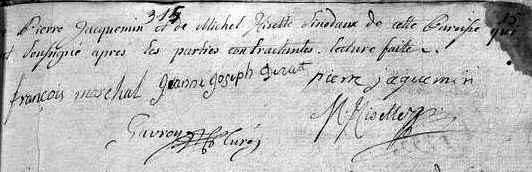 315
15
Pierre Jacquemin et de Michel Nisette Sinodaux de cette Paroisse qui
ont soussigné apres les parties contractantes. lecture faite
françois marchal Jeanne Joseph pierre jaquemin
M. Nisette
Curé